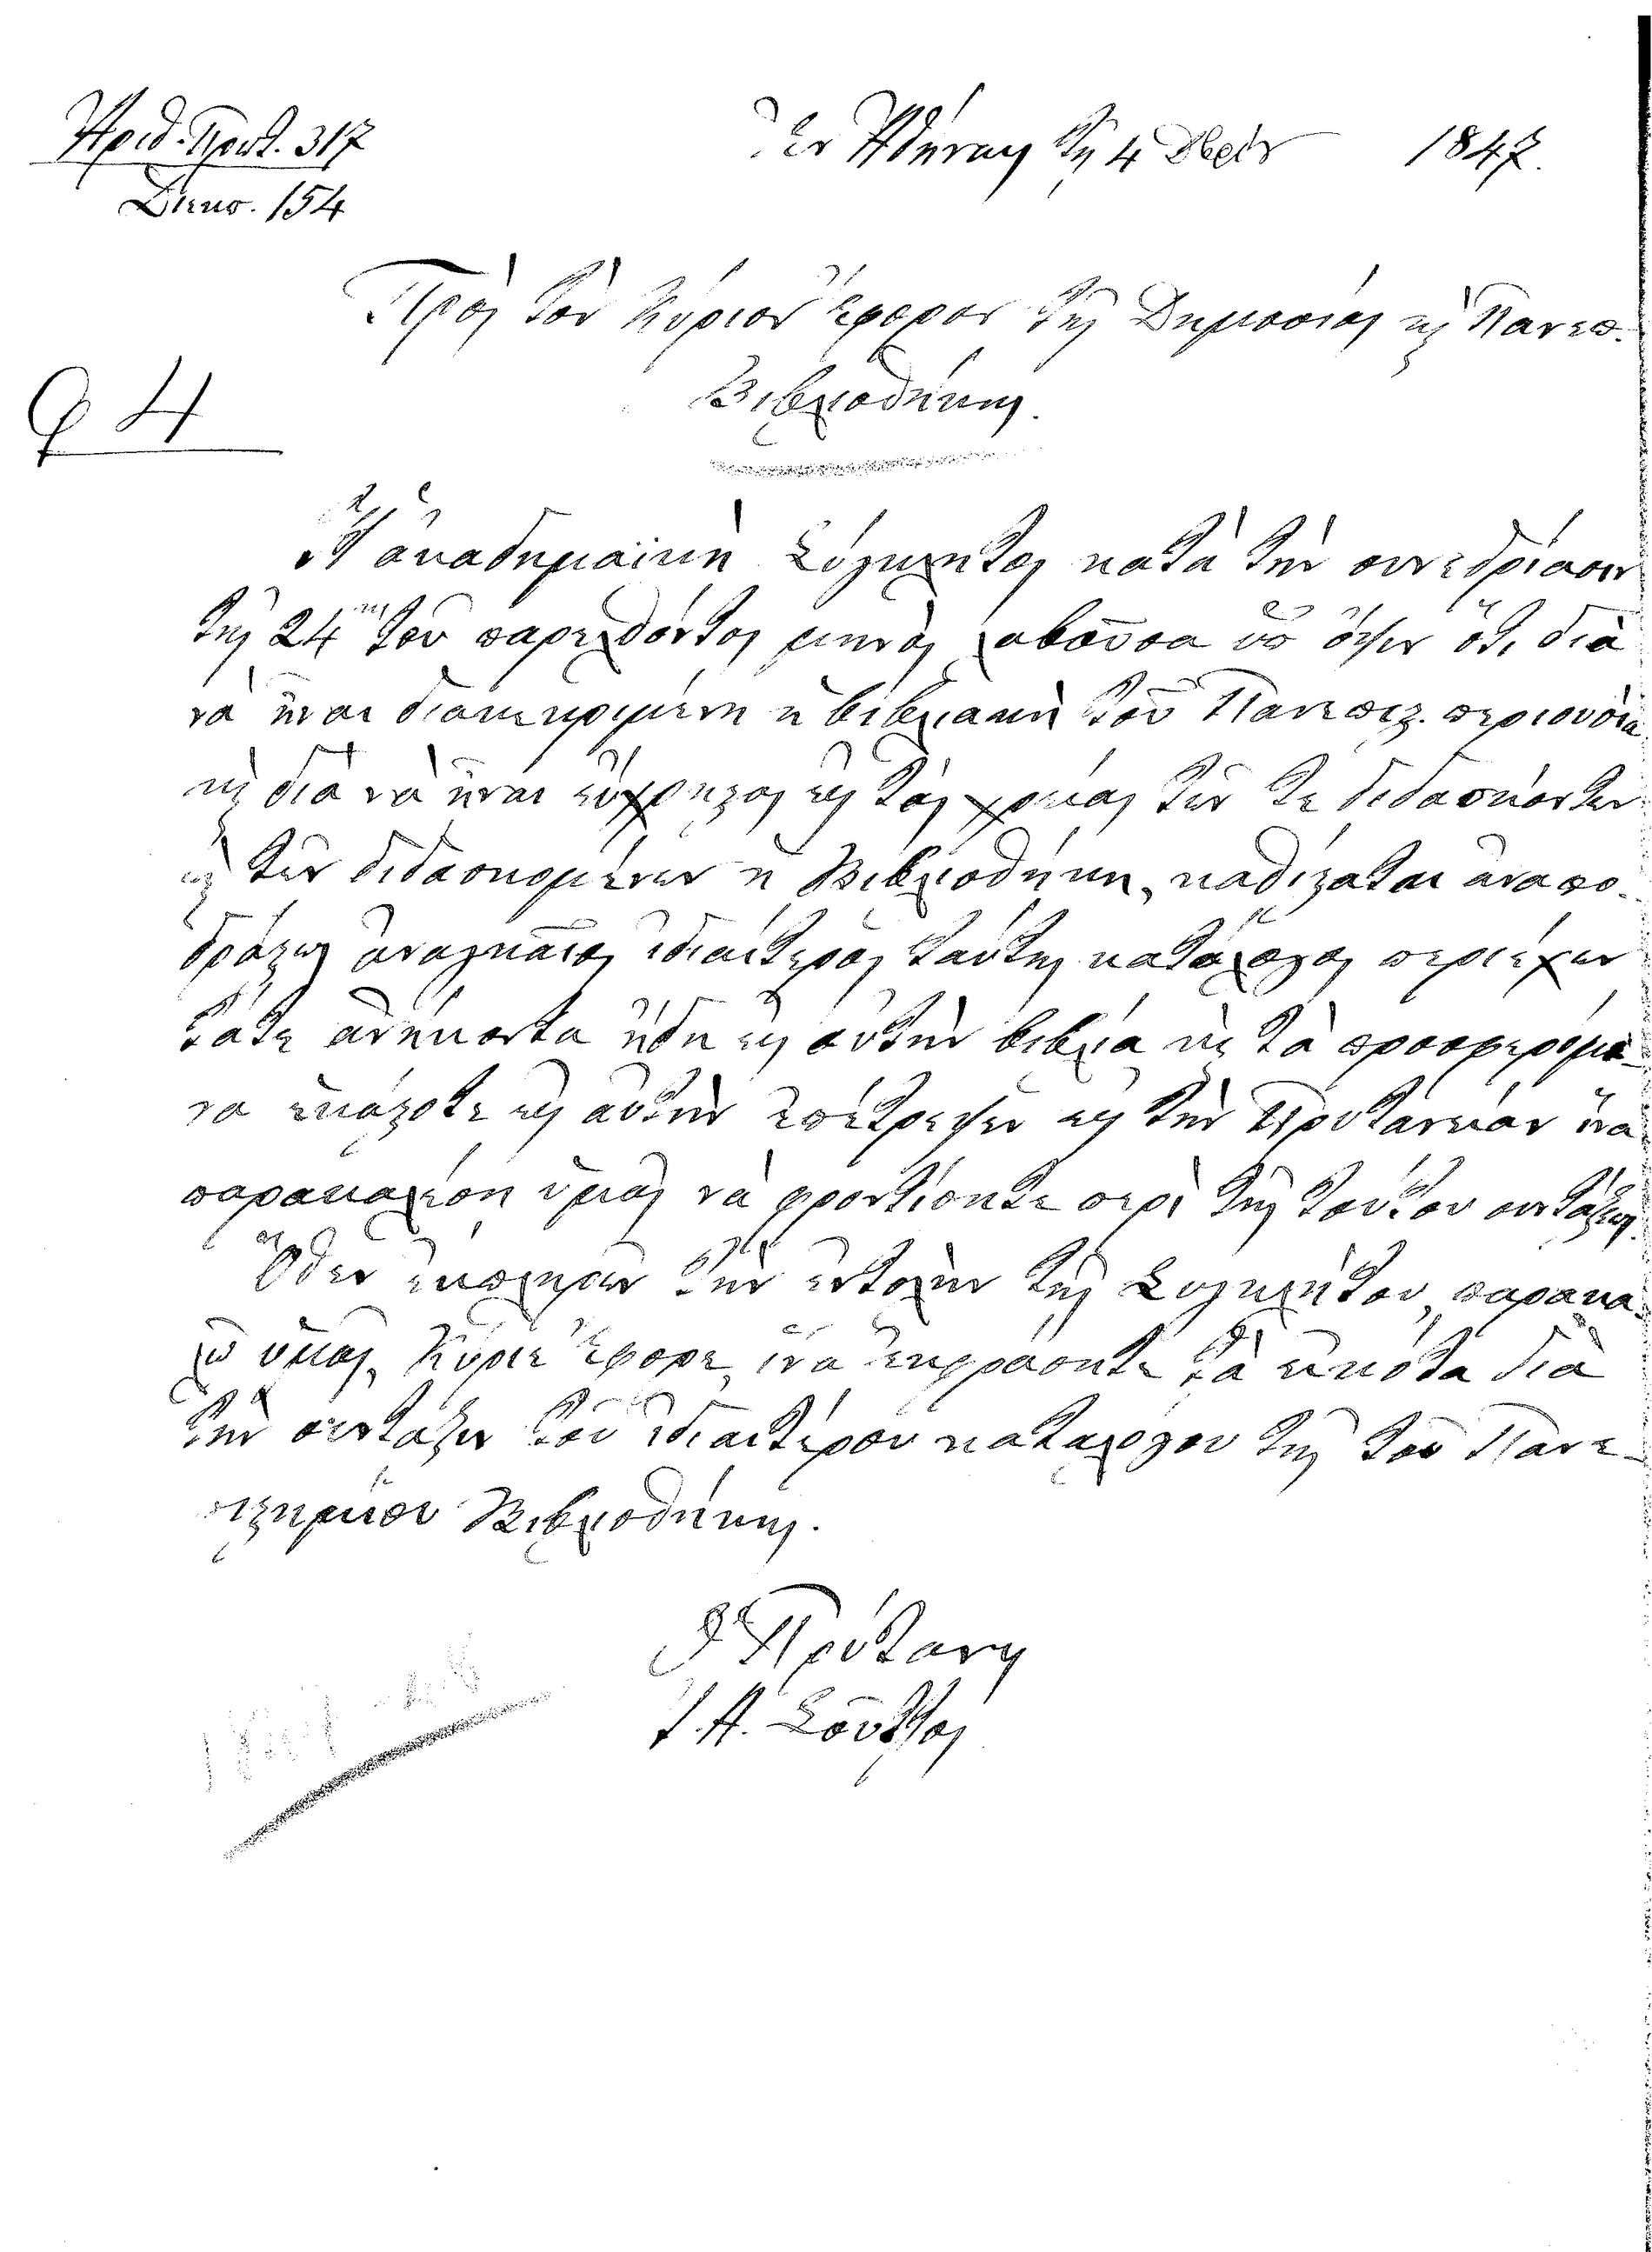 Ἀριθ. Πρωτ. 317
Διεκπ. 154
Ἐν Ἀθήναις τῇ 4 Δβρίου 1847.
Πρὸς τὸν Κύριον Ἔφορον τῆς Δημοσίας καὶ Πανεπ.
Βιβλιοθήκης.
94
Ἡ ἀκαδημαϊκὴ Σύγκλητος κατὰ τὴν συνεδρίασιν
τῆς 24ης τοῦ παρελθόντος μηνὸς λαβοῦσα ὑπ' ὄψιν ὅτι διὰ
νὰ ἦναι διακεκριμένη ἡ βιβλιακὴ τοῦ Πανεπις. περιουσία
καὶ διὰ νὰ ἦναι εὔχρηςος εἰς τὰς χρείας τῶν τε διδασκόντων
καὶ τῶν διδασκομένων ἡ Βιβλιοθήκη, καθίςαται ἀναπο-
δράςως ἀναγκαῖος ἰδιαίτερος ταύτης κατάλογος περιέχων
τάτε ἀνήκοντα ἤδη εἰς αὐτὴν βιβλία καὶ τὰ προσφερόμε-
να ἑκάςοτε εἰς αὐτὴν ἐπέτρεψεν εἰς τὴν Πρυτανείαν ἵνα
παρακαλέσῃ ὑμᾶς νὰ φροντίσητε περὶ τῆς τούτου συντάξεως.
Ὅθεν ἐκπληρῶν τὴν ἐντολὴν τῆς Συγκλήτου, παρακα-
λῶ ὑμᾶς, Κύριε Ἔφορε, ἵνα ἐκφράσητε τὰ εἰκότα διὰ
τὴν σύνταξιν τοῦ ἰδιαιτέρου καταλόγου τῆς τοῦ Πανε-
πιςημίου Βιβλιοθήκης.
Ὁ Πρύτανις
Ι. Α. Σοῦτσος